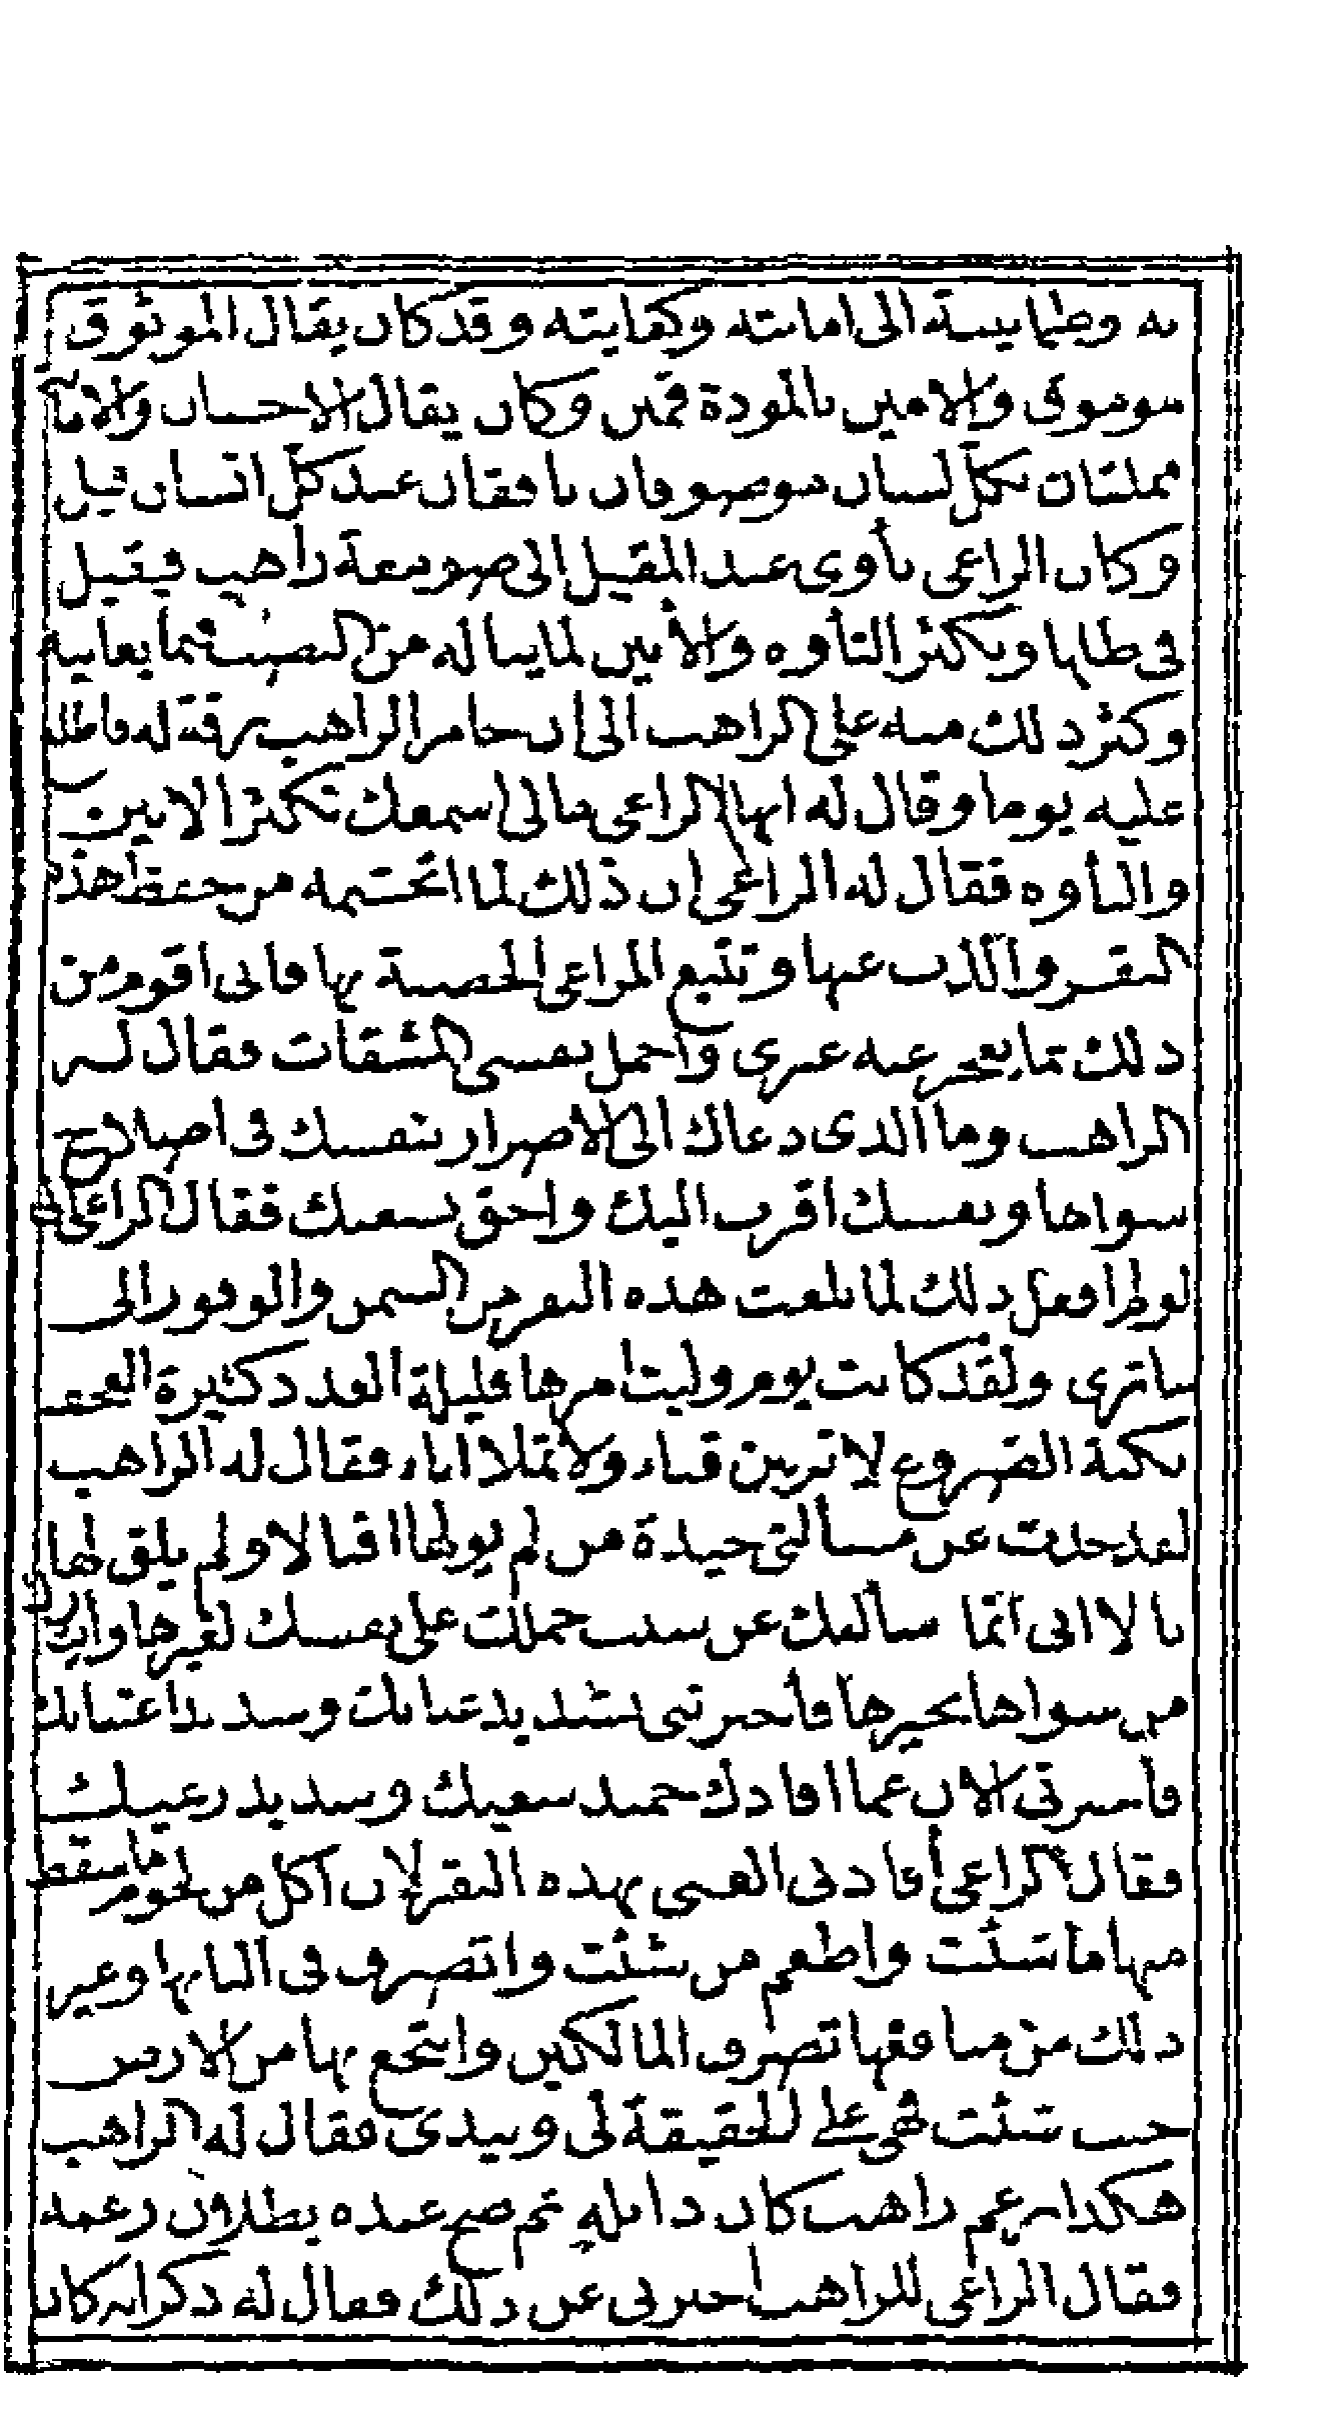 به وطمانينة الى امانته وكفايته وقد كان يقال الموثوق
موموق والامين بالمودة قمين وكان يقال الاحسان والامانة
مملتان بكل لسان فقال عند كل انسان قيل
وكان الراعى يأوى عند المقيل الى صومعة راهب فيقيل
فى ظلها ويكثر التأوه والأنين لما يناله من النصب مما يعانيه
وكثر ذلك منه على الراهب الى ان خامر الراهب رقة له فاطلع
عليه يوما وقال له ايها الراعى مالى اسمعك تكثر الانين
والتأوه فقال له الراعى ان ذلك لما اتحشمه من حفظ هذه
البقر والذب عنها وتتبع المراعى الخصبة بها فانى اقوم من
ذلك بما يعجز عنه غيرى واحمل نفسى المشقات فقال له
الراهب وما الذى دعاك الى الاضرار بنفسك فى اصلاح
سواها ونفسك اقرب اليك واحق بسعيك فقال الراعى
لو لم افعل ذلك لما بلغت هذه البقر من السمن والوفور الى
ماترى ولقد كانت يوم وليت امرها قليلة العدد كثيرة العجف
بكية الضروع لا تربين فناء ولا تملا اناء فقال له الراهب
لقد حدت عن مسألتى حيدة من لم يولها اقبالا ولم يلق لها
بالا انى انما سألتك عن سبب حملك على نفسك لغيرها وايثارك
من سواها بخيرها فأخبرتنى بشديد عنايك وسديد اعتنايك
فأخبرنى الان عما افادك حميد سعيك وسديد رعيك
فقال الراعى أفادنى الغنى بهذه البقر لان آكل من لحوم ماسقط
منها ما شئت واطعم من شئت واتصرف فى البانها وغير
ذلك من منافعها تصرف المالكين وانتجع بها من الارض
حيث شئت فهى على الحقيقة لى وبيدى فقال له الراهب
هكذا زعم راهب كان ذا بله ثم صح عنده بطلان زعمه
فقال الراعى للراهب اخبرنى عن ذلك فقال له ذكر انه كان